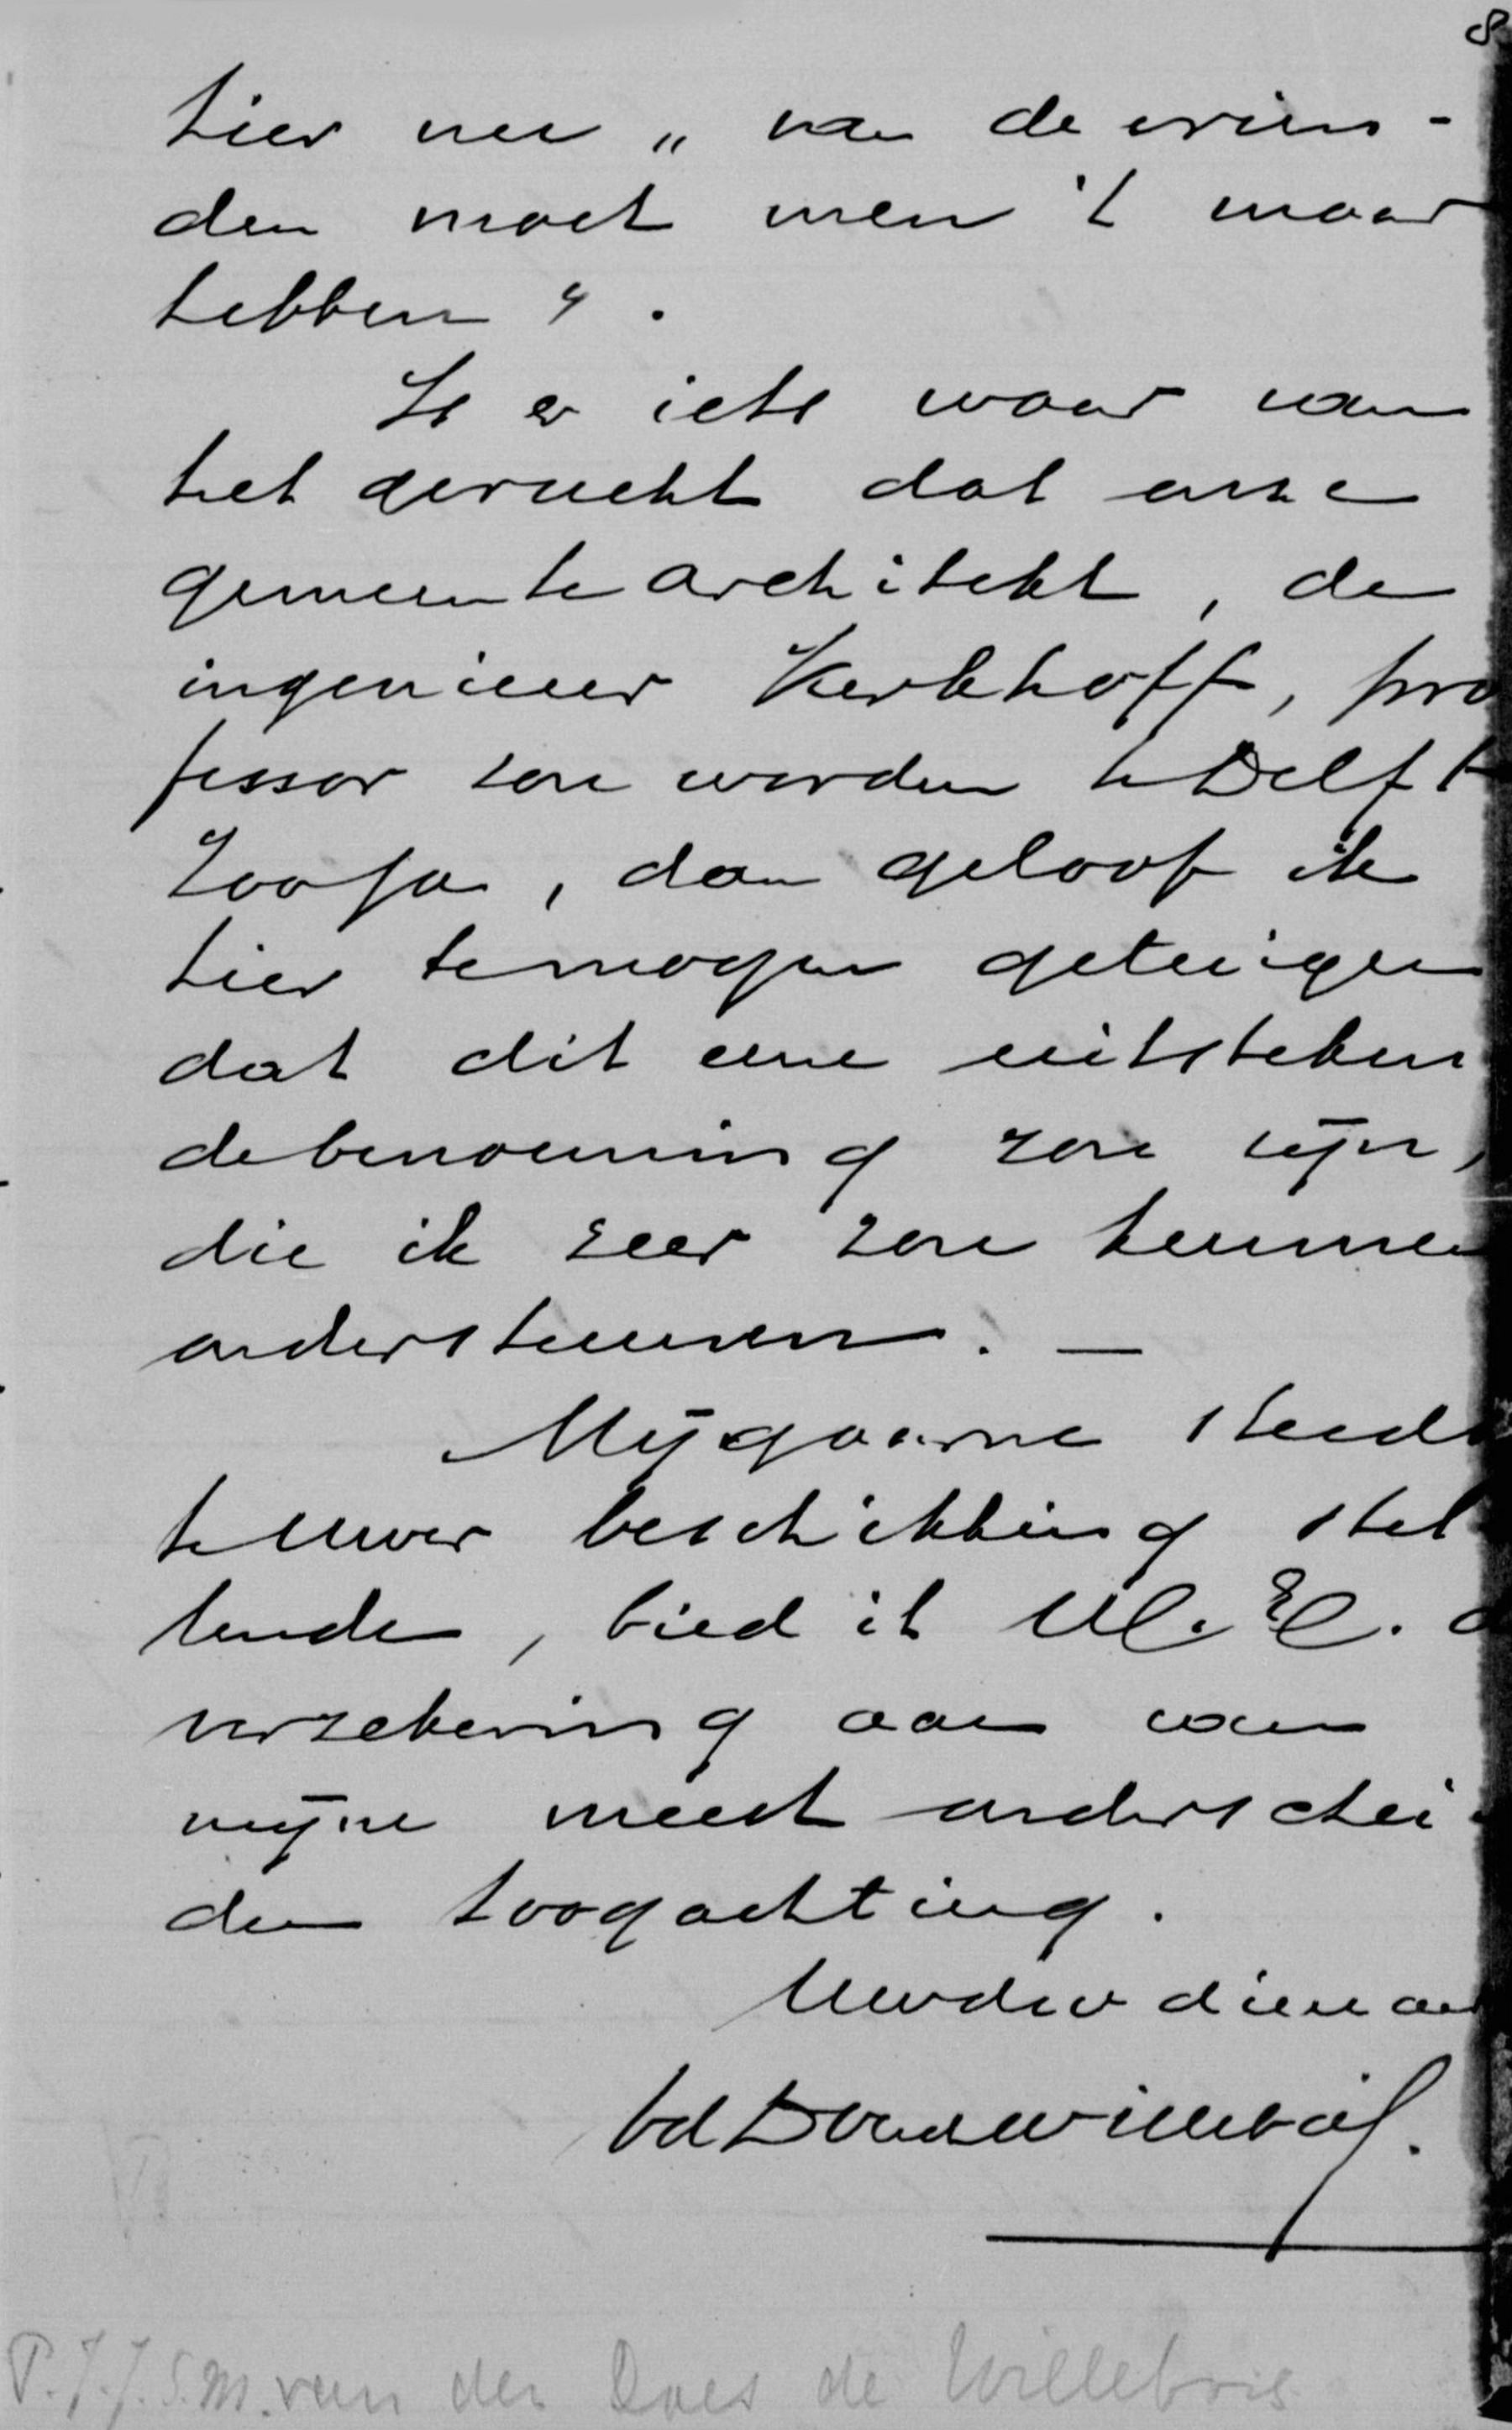 8
hier nu „ van de vrien-
den moet men 't maar
hebben " .
Is er iets waar van
het gerucht dat onze
gemeente architekt , de
ingenieur Kerkhoff, pro
fessor zou worden te Delft
Zoo ja , dan geloof ik
hier te mogen getuigen
dat dit eene uitsteken
de benoeming zou zijn,
die ik zeer zou kunnen
ondersteunen. —
Mij gaarne steeds
te Uwer beschikking stel
lende , bied ik UE. E. d
verzekering aan van
mijne meest onderschei-
den hoogachting.
Uwdw dienaar
vd Does de Willebois.
P.J.J.S.M. van der Does de Willebois